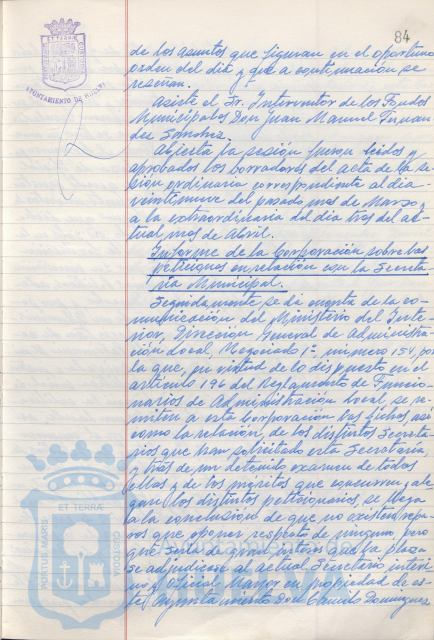 84
ET TERRÆ
AYUNTAMIENTO DE HUELVA
de los asuntos que figuran en el oportuno
orden del día y que a continuación se
reseñan.
Asiste el Sr. Interventor de los Fondos
Municipales Don Juan Manuel Fernan
dez Sanchez.
Abierta la sesión fueron leidos y
aprobados los borradores del acta de la se
sión ordinaria correspondiente al dia
veintinueve del pasado mes de Marzo y
a la extraordinaria del dia tres del ac-
tual mes de Abril.
Informe de la Corporación sobre las
peticiones en relación con la Secreta
ría Municipal.
Seguidamente se dá cuenta de la co-
municación del Ministerio del Inte-
rior, Dirección General de Administra-
ción Local, Negociado 1º, número 154, por
la que, en virtud de lo dispuesto en el
artículo 196 del Reglamento de Funcio-
narios de Administración Local, se re-
miten a esta Corporación las fichas, asi
como la relación, de los distintos Secreta-
rios que han solicitado esta Secretaría,
y tras de un detenido examen de todos
ellos y de los méritos que concurren y ale
gan los distintos peticionarios, se llega
a la conclusión de que no existen repa-
ros que oponer respecto de ninguno, pero
que sería de gran interés que la plaza
se adjudicase al actual Secretario interi
no y Oficial Mayor en propiedad de es-
te Ayuntamiento Don Camilo Domínguez
ET TERRÆ
PORTUS MARIS
CUSTODIA